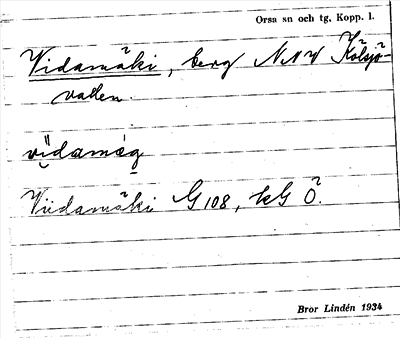 Orsa sn och tg, Kopp. l.
Vidamäki, berg NNV Kölsjö-
vallen.
vidamäg
Viidamäki G 108, kG Ö.
Bror Lindén 1934